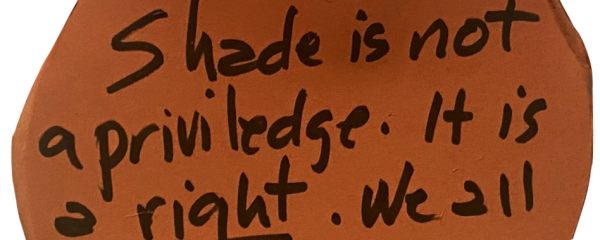 Shade is not
a priviledge. It is
a right. We all